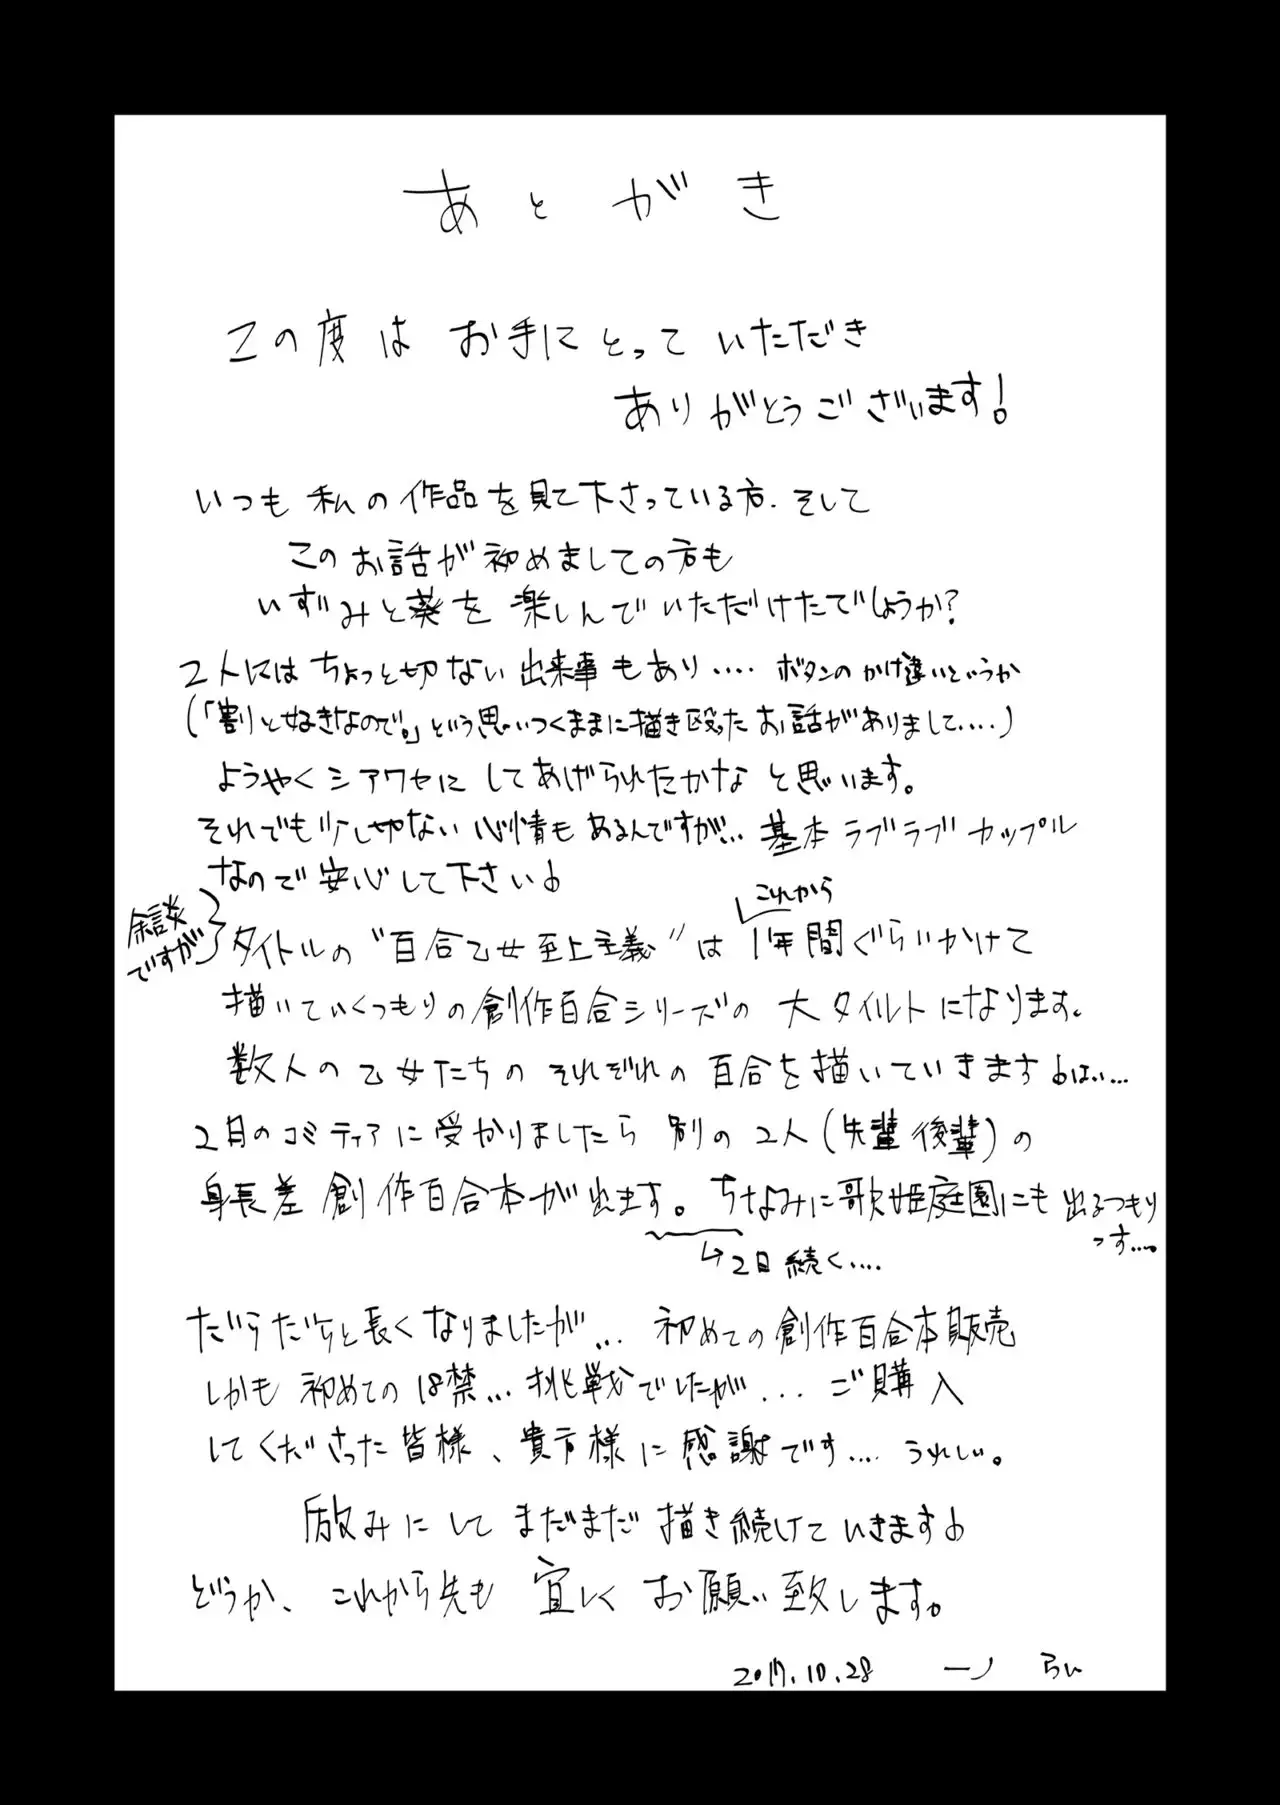 あとがき
この度は お手にとって いただき
ありがとうございます!
いつも 私の作品を見て下さっている方.そして
このお話が初めましての方も
いずみと葵を楽しんでいただけたでしょうか?
2人には ちょっと切ない出来事もあり.... ボタンのかけ違いというか
(「割と好きなので。」という思いつくままに描き殴ったお話がありまして....)
ようやくシアワセに してあげられたかな と思います。
それでも少し切ない心情もあるんですが... 基本ラブラブカップル
なので安心して下さい♪
余談ですが
これから
タイトルの"百合乙女至上主義"は 1年間ぐらいかけて
描いていくつもりの創作百合シリーズの 大タイルトになります。
数人の乙女たちの それぞれの 百合を描いていきます♪はい...
2月のコミティアに受かりましたら 別の2人(先輩後輩)の
身長差 創作百合本が出ます。 ちなみに歌姫庭園にも 出るつもり
っす....。
→2日続く....
だらだらと長くなりましたが... 初めての創作百合本販売
しかも 初めての18禁... 挑戦でしたが... ご購入
してくださった皆様、貴方様に感謝です.... うれしい。
励みにして まだまだ 描き続けていきます♪
どうか、これから先も 宜しく お願い致します。
2017.10.28 一ノ